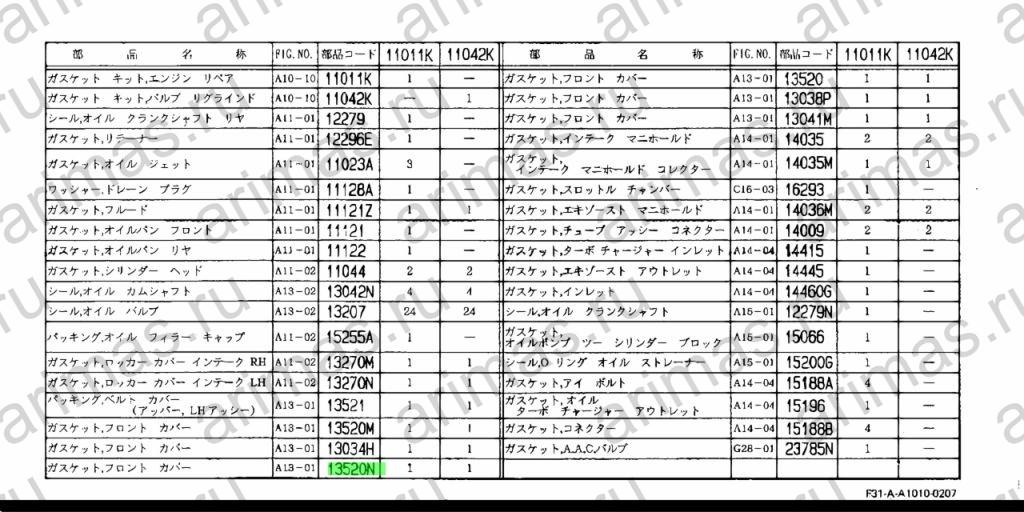 部 品 名 称 FIG.NO. 部品コード 11011K 11042K 部 品 名 称 FIG.NO. 部品コード 11011K 11042K
ガスケット キット,エンジン リペア A10-10 11011K 1 — ガスケット,フロント カバー A13-01 13520 1 1
ガスケット キット,バルブ リグラインド A10-10 11042K — 1 ガスケット,フロント カバー A13-01 13038P 1 1
シール,オイル クランクシャフト リヤ A11-01 12279 1 — ガスケット,フロント カバー A13-01 13041M 1 1
ガスケット,リテーナー A11-01 12296E 1 — ガスケット,インテーク マニホールド A14-01 14035 2 2
ガスケット,オイル ジェット A11-01 11023A 3 ガスケット,
インテーク マニホールド コレクター A14-01 14035M 1 1
ワッシャー,ドレーン プラグ A11-01 11128A 1 — ガスケット,スロットル チャンバー C16-03 16293 1 —
ガスケット,フルード A11-01 11121Z 1 1 ガスケット,エキゾースト マニホールド A14-01 14036M 2 2
ガスケット,オイルパン フロント A11-01 11121 1 — ガスケット,チューブ アッシー コネクター A14-01 14009 2 2
ガスケット,オイルパン リヤ A11-01 11122 1 — ガスケット,ターボ チャージャー インレット A14-04 14415 1 —
ガスケット,シリンダー ヘッド A11-02 11044 2 2 ガスケット,エキゾースト アウトレット A14-04 14445 1 —
シール,オイル カムシャフト A13-02 13042N 4 4 ガスケット,インレット A14-04 14460G 1 —
シール,オイル バルブ A13-02 13207 24 24 シール,オイル クランクシャフト A15-01 12279N 1 —
パッキング,オイル フィラー キャップ A11-02 15255A 1 — ガスケット,
オイルポンプ ツー シリンダー ブロック A15-01 15066 1 —
ガスケット,ロッカー カバー インテーク RH A11-02 13270M 1 1 シール,O リング オイル ストレーナー A15-01 15200G 1 —
ガスケット,ロッカー カバー インテーク LH A11-02 13270N 1 1 ガスケット,アイ ボルト A14-04 15188A 4 —
パッキング,ベルト カバー
(アッパー, LHアッシー) A13-01 13521 1 1 ガスケット,オイル
ターボ チャージャー アウトレット A14-04 15196 1 —
ガスケット,フロント カバー A13-01 13520M 1 1 ガスケット,コネクター A14-04 15188B 4 —
ガスケット,フロント カバー A13-01 13034H 1 1 ガスケット,A.A.C.バルブ G28-01 23785N 1 —
ガスケット,フロント カバー A13-01 13520N 1 1
F31-A-A1010-0207
arimas.ru